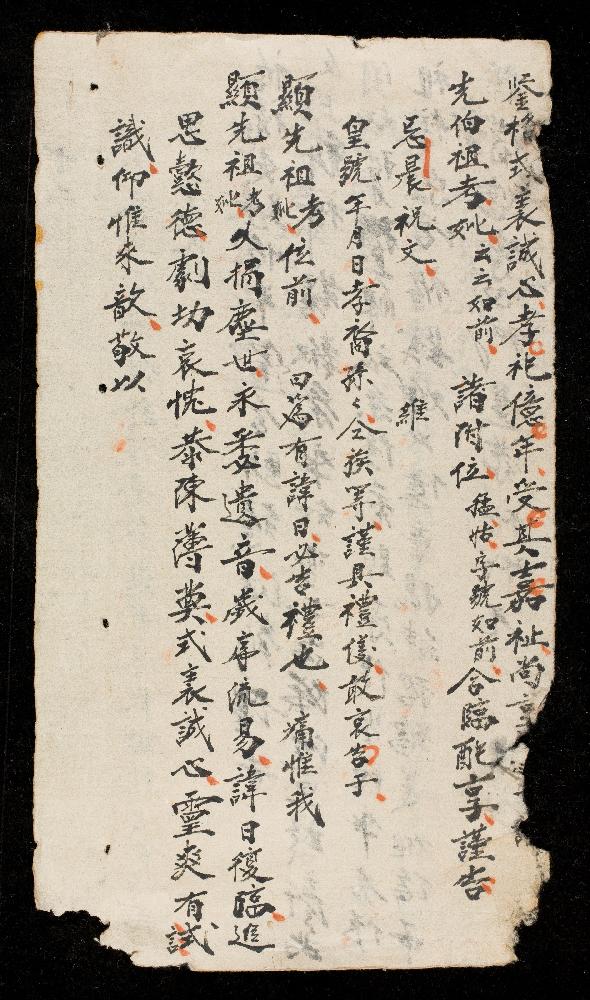 鑒格式表誠心孝祀億年受其嘉祉尚享
先伯祖考妣云云如前 諸附位 猛怙字號如前 合臨配享謹告
忌晨祝文 維
皇號年月日孝裔孫々仝族等謹具禮儀敢哀告于
顯先祖考妣位前 曰篤有諱日必告禮也 痛惟我
顯先祖考妣久捐塵世永委遺音歲序流易諱日復臨追
思懿德劇切哀忱恭陳薄奠式表誠心靈爽有試
識仰惟來歆敬以